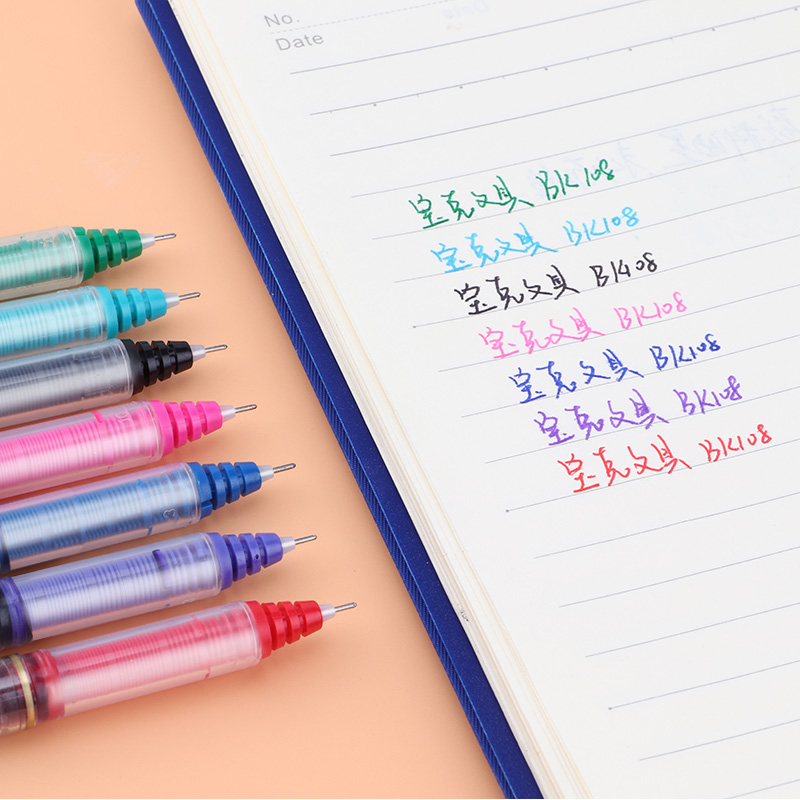 No.
Date
宝克文具 BK108
宝克文具 BK108
宝克文具 BK108
宝克文具 BK108
宝克文具 BK108
宝克文具 BK108
宝克文具 BK108